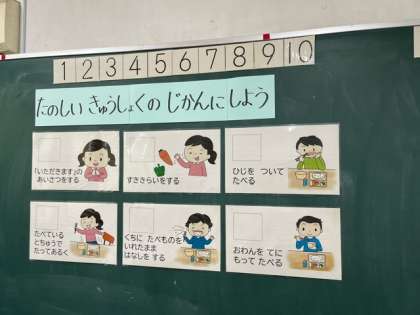 1 2 3 4 5 6 7 8 9 10
たのしい きゅうしょくの じかんに しよう
「いただきます」の
あいさつをする
すききらいをする
ひじを ついて
たべる
たべている
とちゅうで
たってあるく
くちに たべものを
いれたまま
はなしを する
おわんを てに
もって たべる